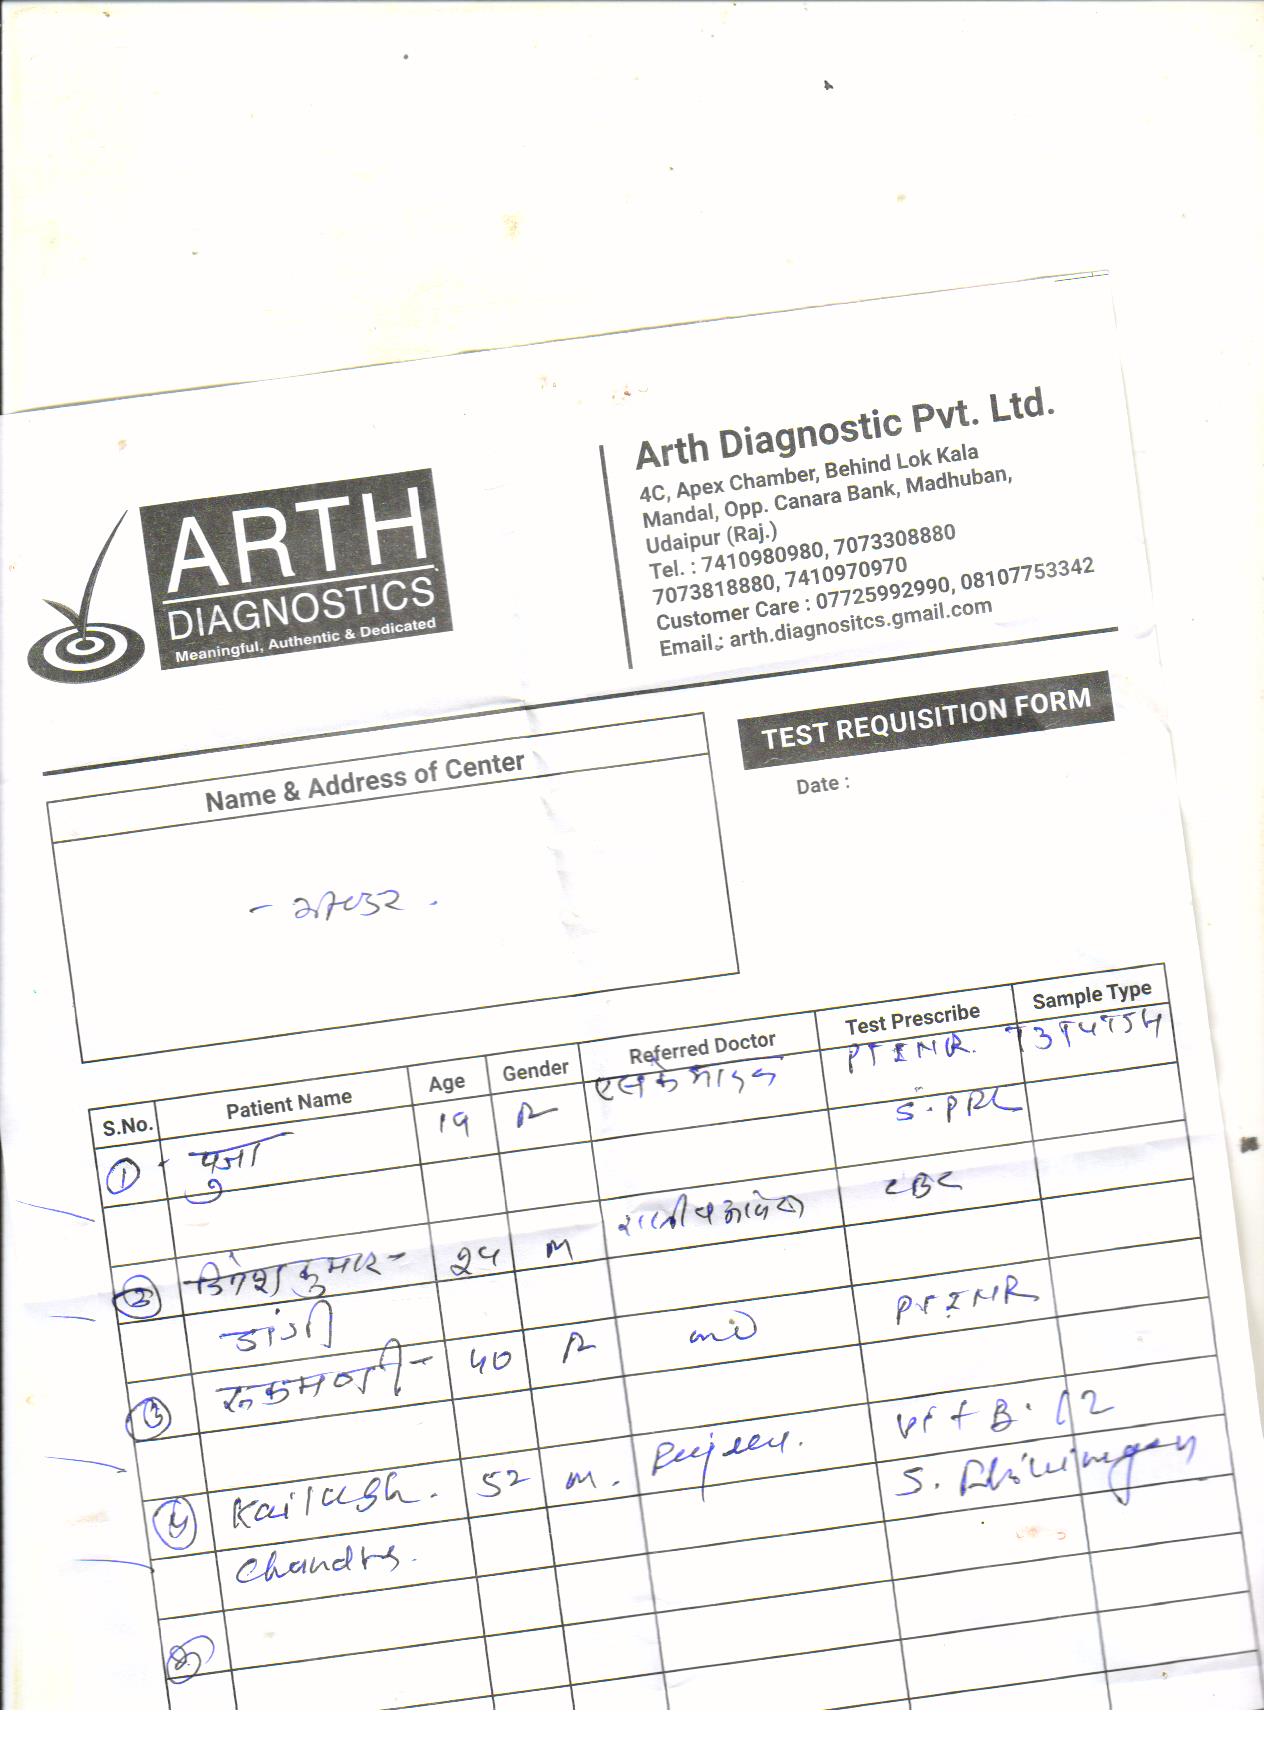 Arth Diagnostic Pvt. Ltd.
4C, Apex Chamber, Behind Lok Kala
Mandal, Opp. Canara Bank, Madhuban,
Udaipur (Raj.)
Tel. : 7410980980, 7073308880
7073818880, 7410970970
Customer Care : 07725992990, 08107753342
Email.: arth.diagnositcs.gmail.com
ARTH
DIAGNOSTICS
Meaningful, Authentic & Dedicated
TEST REQUISITION FORM
Date :
Name & Address of Center
S.No. Patient Name Age Gender Referred Doctor Test Prescribe Sample Type
1 पुजा 19 PTINR
S. PRL
2 कुमार 24 M CBC
डांगी
3 रूकमणी 40 PTINR
4 Kailash. 52 M. Vit B. 12
Chandra. S.
5